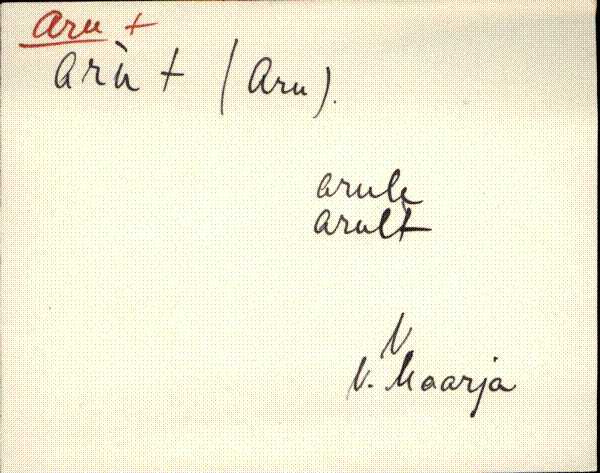 Aru +
Arù + (Aru).
arule
arult
V
V. Maarja